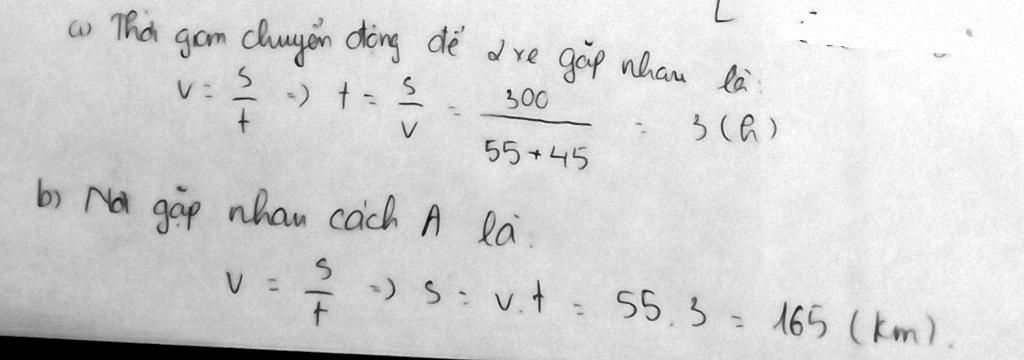 a) Thời gian chuyển động để 2 xe gặp nhau là:
v = s/t => t = s/v = 300/(55+45) = 3 (h)
b) Nơi gặp nhau cách A là:
v = s/t => s = v.t = 55.3 = 165 (km).